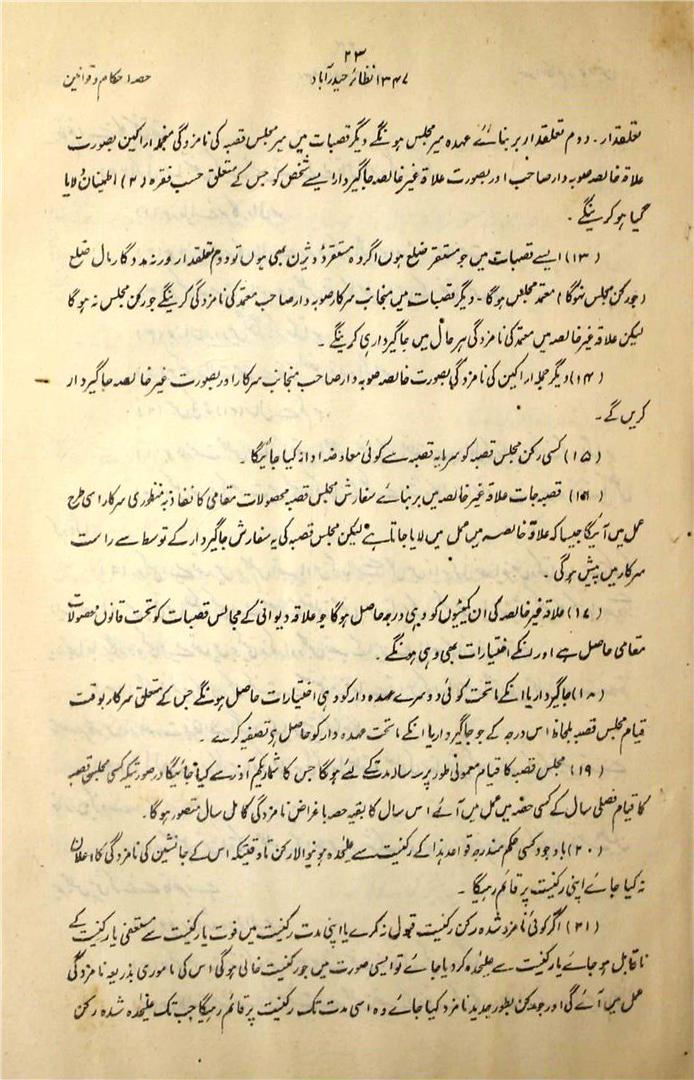 ۲۳
۱۳۴۷ نظائر حیدرآباد
حصہ احکام و قوانین
تعلقدار۔ دوم تعلقدار بر بنائے عہدہ میر مجلس ہونگے دیگر قصبات میں میر مجلس قصبہ کی نامزدگی منجملہ اراکین بصورت
علاقہ خالصہ صوبہ دار صاحب اور بصورت علاقہ غیر خالصہ جاگیردار ایسے شخص کو جس کے متعلق حسب فقرہ (۲) اطمینان دلایا
گیا ہو کرینگے۔
(۱۳) ایسے قصبات میں جو مستقر ضلع ہوں اگر وہ مستقر ڈویژن بھی ہوں تو دوم تعلقدار ورنہ مددگار مال ضلع
(جو رکن مجلس نہوگا) معتمد مجلس ہوگا۔ دیگر قصبات میں منجانب سرکار صوبہ دار صاحب معتمد کی نامزدگی کرینگے جو رکن مجلس نہ ہوگا
لیکن علاقہ غیر خالصہ میں معتمد کی نامزدگی ہر حال میں جاگیردار ہی کرینگے۔
(۱۴) دیگر جملہ اراکین کی نامزدگی بصورت خالصہ صوبہ دار صاحب منجانب سرکار اور بصورت غیر خالصہ جاگیردار
کریں گے۔
(۱۵) کسی رکن مجلس قصبہ کو سرمایہ قصبہ سے کوئی معاوضہ ادا نہ کیا جائیگا۔
(۱۶) قصبہ جات علاقہ غیر خالصہ میں بر بنائے سفارش مجلس قصبہ محصولات مقامی کا نفاذ بہ منظوری سرکار اسی طرح
عمل میں آئیگا جیسا کہ علاقہ خالصہ میں عمل میں لایا جاتا ہے لیکن مجلس قصبہ کی یہ سفارش جاگیردار کے توسط سے راست
سرکار میں پیش ہوگی۔
(۱۷) علاقہ غیر خالصہ کی ان کمیٹیوں کو وہی درجہ حاصل ہوگا جو علاقہ دیوانی کے مجالس قصبات کو تحت قانون محصولات
مقامی حاصل ہے اور انکے اختیارات بھی وہی ہونگے۔
(۱۸) جاگیردار یا انکے ماتحت کوئی دوسرے عہدہ دار کو وہی اختیارات حاصل ہونگے جس کے متعلق سرکار بوقت
قیام مجلس قصبہ بلحاظ اس درجہ کے جو جاگیردار یا انکے ماتحت عہدہ دار کو حاصل ہو تصفیہ کرے۔
(۱۹) مجلس قصبہ کا قیام معمولی طور پر سہ سالہ مدت کے لئے ہوگا جس کا شمار یکم آذر سے کیا جائیگا درصورتیکہ کسی مجلس قصبہ
کا قیام فصلی سال کے کسی حصہ میں عمل میں آئے اس سال کا بقیہ حصہ باغراض نامزدگی کامل سال متصور ہوگا۔
(۲۰) باوجود کسی حکم مندرجہ قواعد ہذا کے رکنیت سے علیٰحدہ ہونیوالا رکن تا وقتیکہ اس کے جانشین کی نامزدگی کا اعلان
نہ کیا جائے اپنی رکنیت پر قائم رہیگا۔
(۲۱) اگر کوئی نامزد شدہ رکن رکنیت قبول نہ کرے یا اپنی مدت رکنیت میں فوت یا رکنیت سے مستعفی یا رکنیت کے
ناقابل ہو جائے یا رکنیت سے علیٰحدہ کر دیا جائے تو ایسی صورت میں جو رکنیت خالی ہوگی اس کی ماموری بذریعہ نامزدگی
عمل میں آئے گی اور جو رکن بطور جدید نامزد کیا جائے وہ اسی مدت تک رکنیت پر قائم رہیگا جب تک علیٰحدہ شدہ رکن